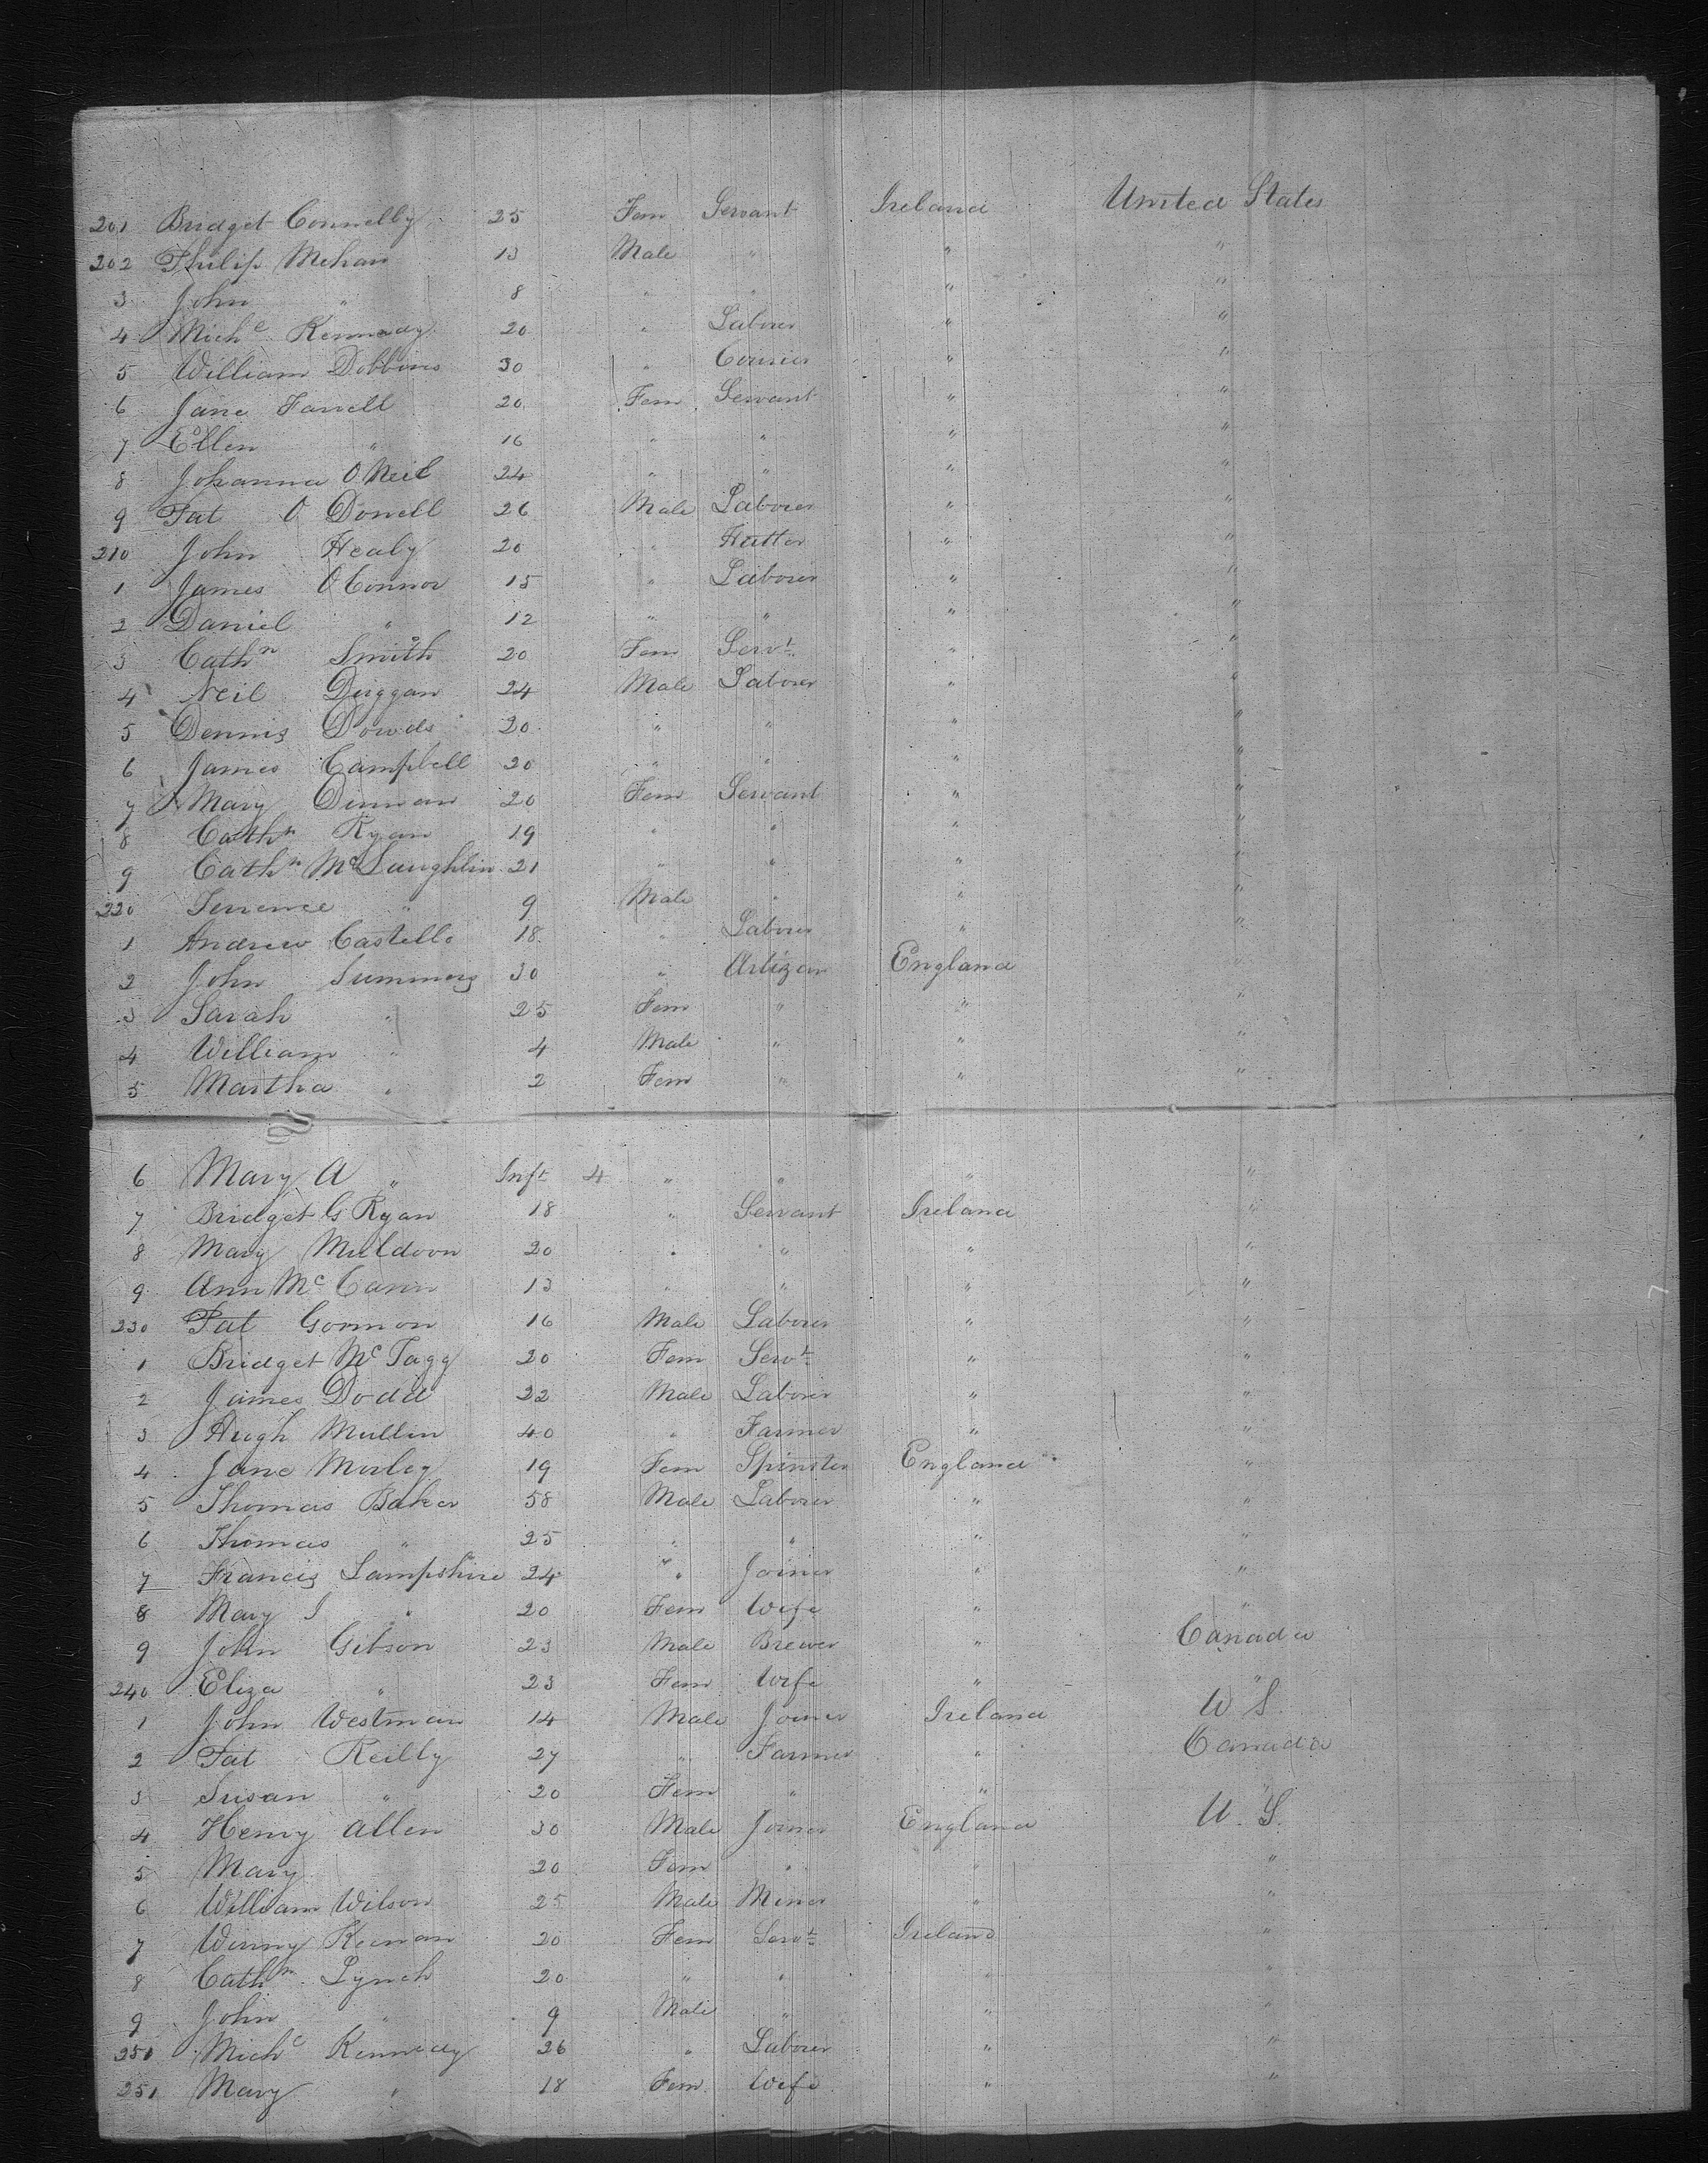 201 Bridget Connelly 25 Fem Servant Ireland United States
202 Philip Mehan 13 Male " " "
3 John " 8 " " " "
4 Mich.l Kennedy 20 " Laborer " "
5 William Dobbins 30 " " "
6 Jane Farrell 20 Fem Servant " "
7 Ellen " 16 " " " "
8 Johanna O Neil 24 " " " "
9 Pat O Donell 26 Male Laborer " "
210 John Healy 20 " Hatter " "
1 James O Connor 15 " Laborer " "
2 Daniel " 12 " " " "
3 Cathn Smith 20 Fem Servt " "
4 Neil Duggan 24 Male Laborer " "
5 Dennis Dowds 20 " " " "
6 James Campbell 20 " " " "
7 Mary 20 Fem Servant " "
8 Cathn Ryan 19 " " " "
9 Cathn McLaughlin 21 " " " "
220 Terrence " 9 Male " " "
1 Andrew Castello 18 " Laborer " "
2 John Summers 30 " Artizan England "
3 Sarah " 25 Fem " " "
4 William " 4 Male " " "
5 Martha " 2 Fem " " "
6 Mary A " Inft 4 " " " "
7 Bridget G Ryan 18 " Servant Ireland "
8 Mary Muldoon 20 " " " "
9 Ann McCann 13 " " " "
230 Pat Gormon 16 Male Laborer " "
1 Bridget McTagg 20 Fem Servt " "
2 James Dodd 22 Male Laborer " "
3 Hugh Mullin 40 " Farmer " "
4 Jane 19 Fem Spinster England "
5 Thomas Baker 58 Male Laborer " "
6 Thomas " 25 " " " "
7 Francis Lampshire 24 " Joiner " "
8 Mary J " 20 Fem Wife " "
9 John Gibson 23 Male Brewer " Canada
240 Eliza " 23 Fem Wife " "
1 John Westman 14 Male Joiner Ireland U S
2 Pat Reilly 27 " Farmer " Canada
3 Susan " 20 Fem " " "
4 Henry Allen 30 Male Joiner England U. S.
5 Mary 20 Fem " " "
6 William Wilson 25 Male Miner " "
7 Winny Keenan 20 Fem Servt Ireland "
8 Cathn Lynch 20 " " " "
9 John " 9 Male " " "
251 Michl Kennedy 26 " Laborer " "
251 Mary " 18 Fem Wife " "